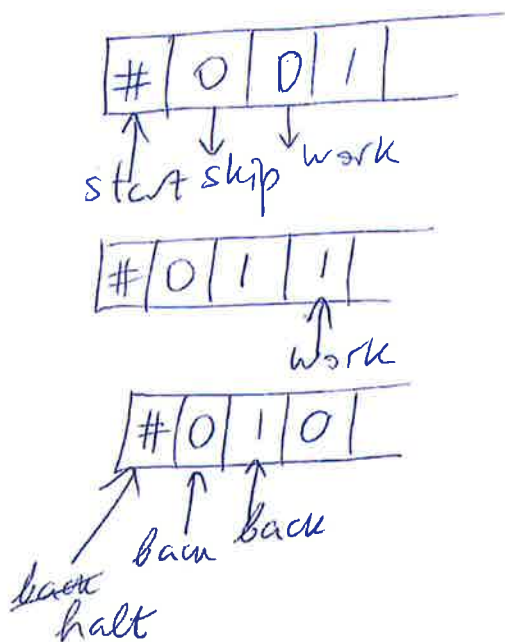 # 0 0 1
start skip work
# 0 1 1
work
# 0 1 0
back back
back
halt